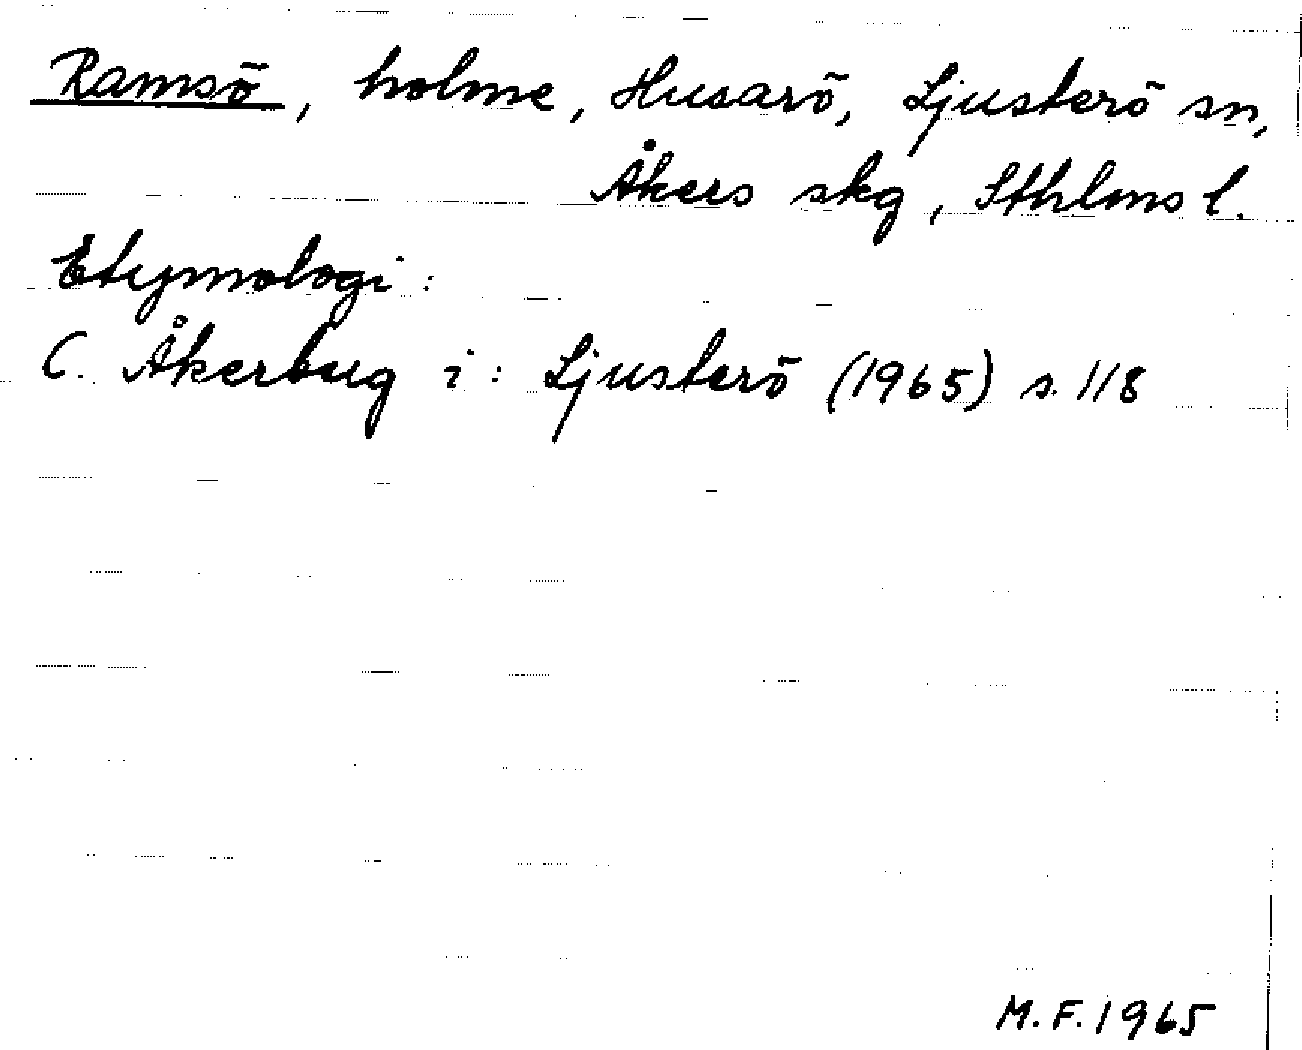 Ramsö, holme, Husarö, Ljusterö sn,
Åkers skg, Sthlms l.
Etymologi:
C. Åkerberg i: Ljusterö (1965) s. 118
M.F. 1965